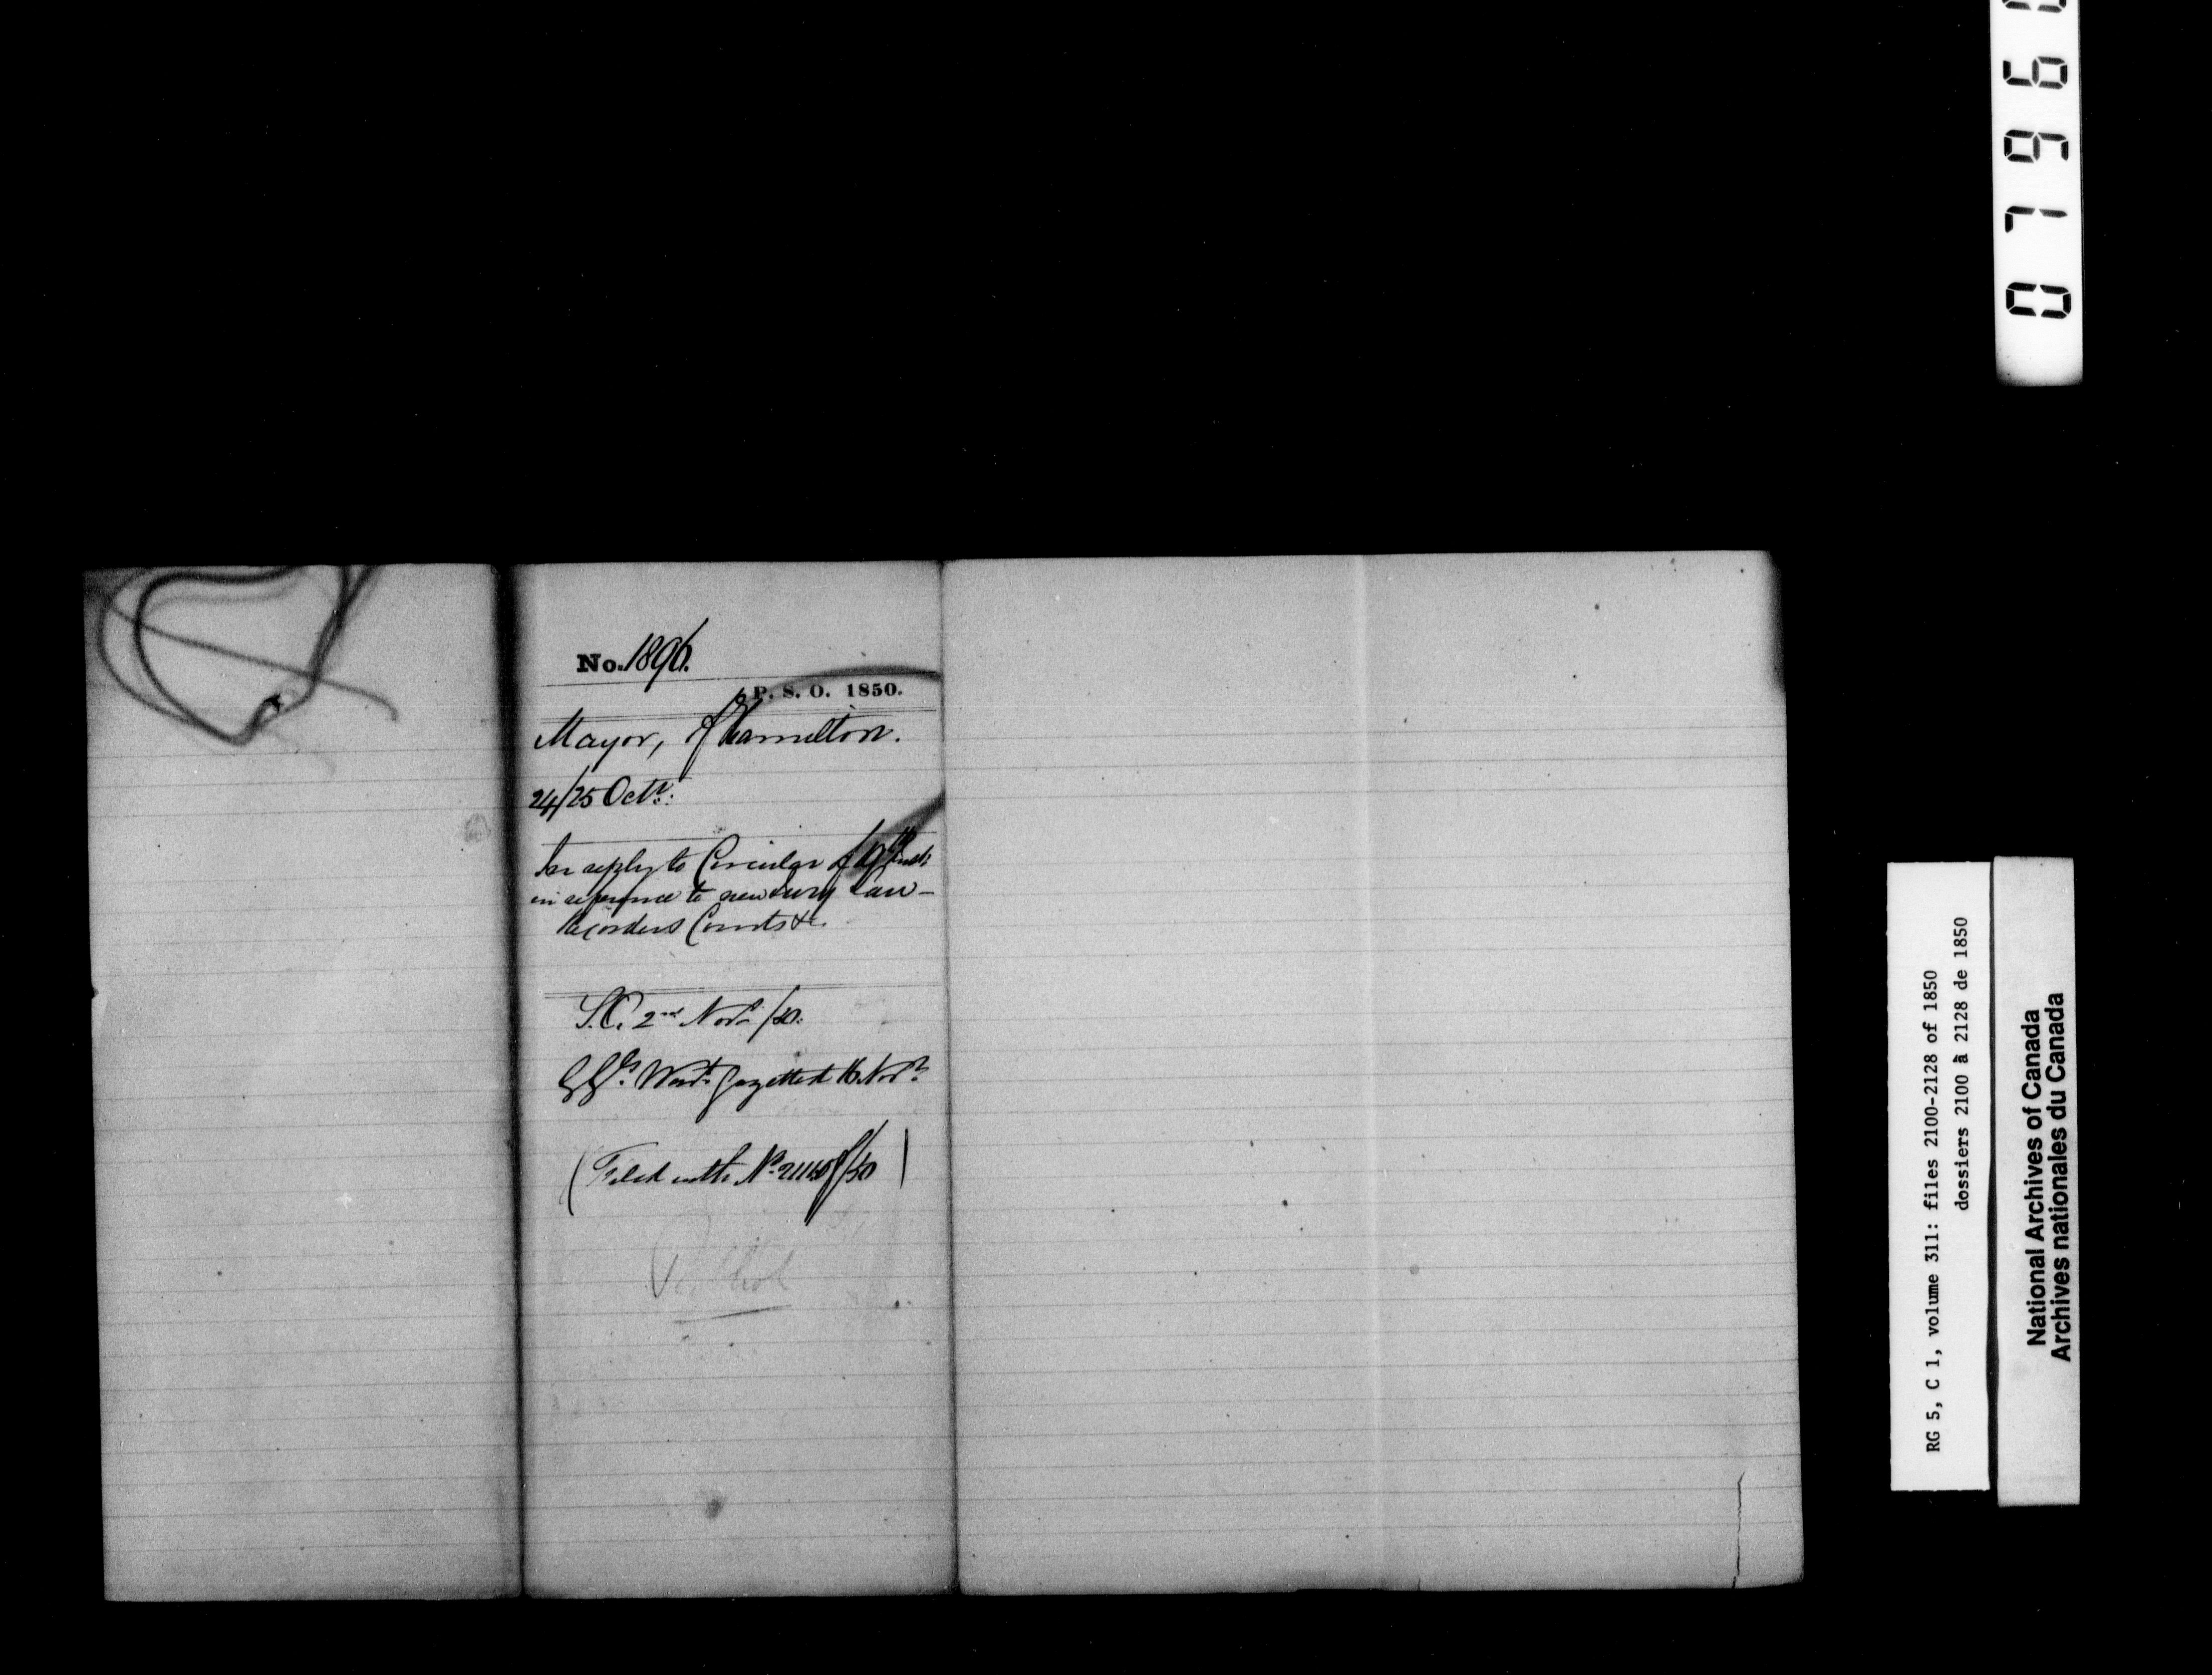 No. 1896.
P. S. O. 1850.
Mayor, of Hamilton.
24/25 Octr:
In reply to Circular of 19th inst:
in reference to new Jury Law—
Recorders Courts &c.
S.C. 2nd Novr /50.
GG's. Wart. Gazetted 16 Novr
(Filed with No. of/50)
0796
RG 5, C 1, volume 311: files 2100-2128 of 1850
dossiers 2100 à 2128 de 1850
National Archives of Canada
Archives nationales du Canada